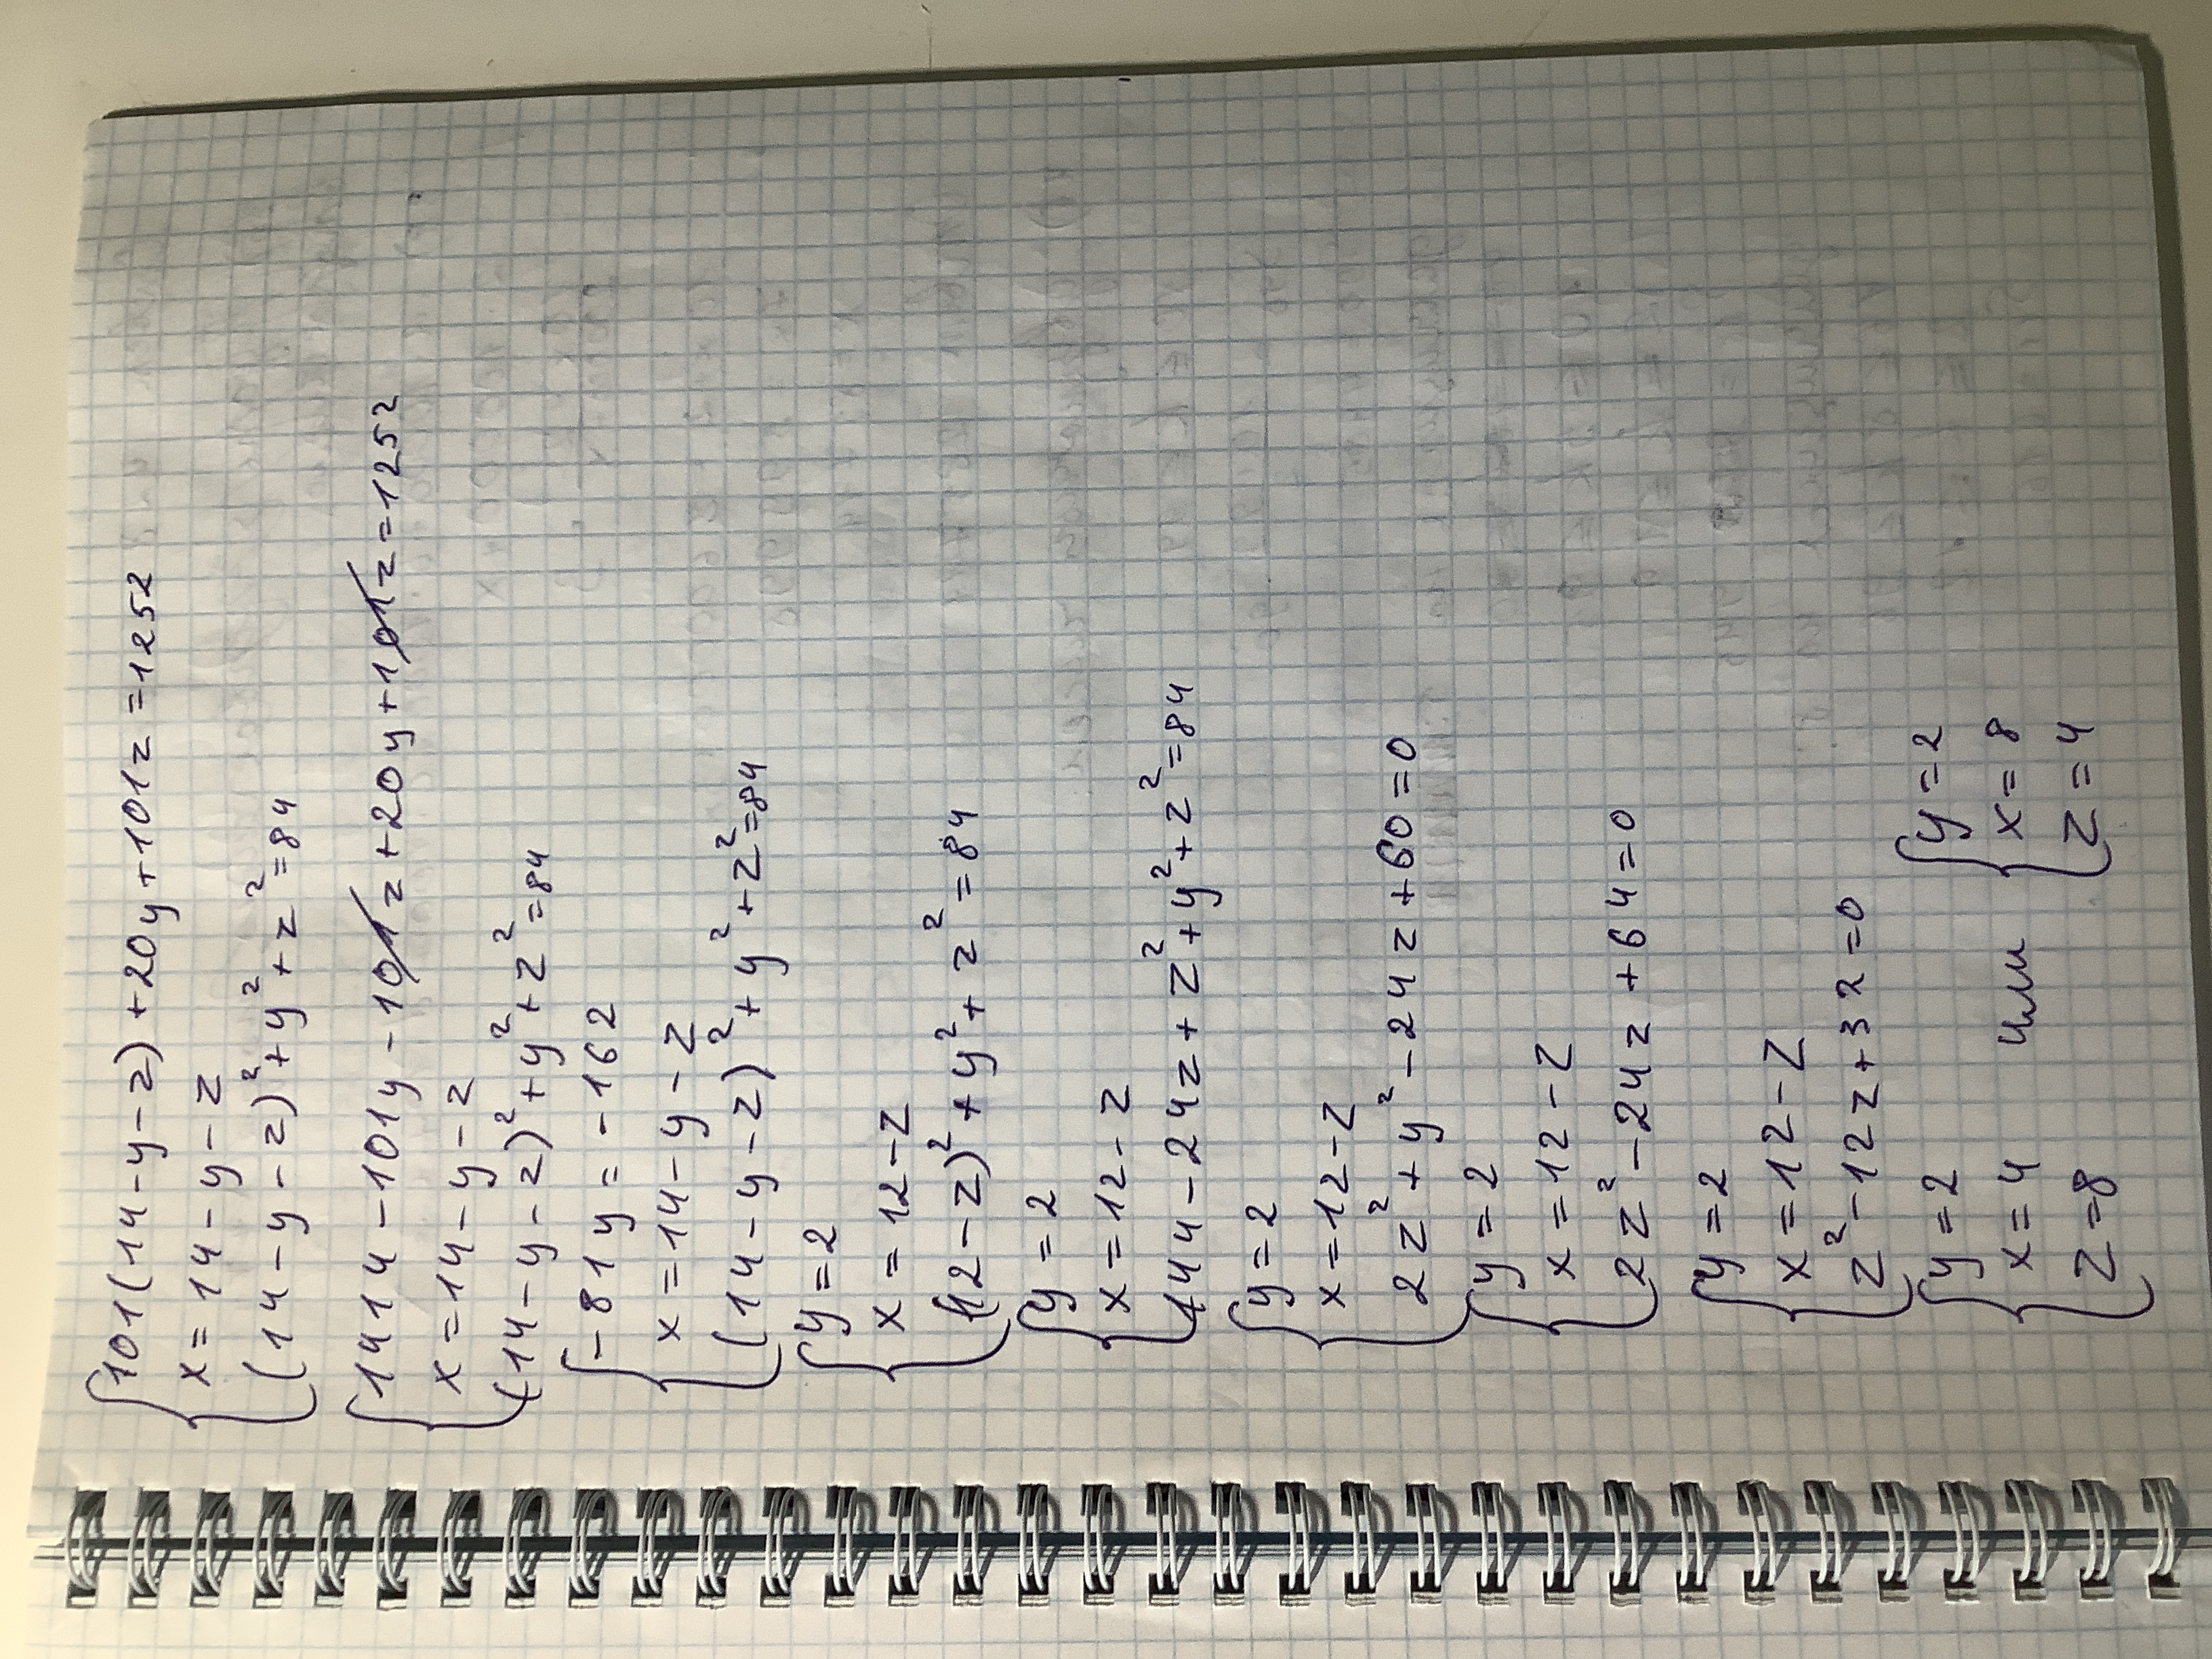 101(14-y-z)+20y+101z=1252
x=14-y-z
(14-y-z)²+y²+z²=84
1414-101y-101z+20y+101z=1252
x=14-y-z
(14-y-z)²+y²+z²=84
-81y=-162
x=14-y-z
(14-y-z)²+y²+z²=84
y=2
x=12-z
(12-z)²+y²+z²=84
y=2
x=12-z
144-24z+z²+y²+z²=84
y=2
x=12-z
2z²+y²-24z+60=0
y=2
x=12-z
2z²-24z+64=0
y=2
x=12-z
z²-12z+32=0
y=2 y=2
x=4 или x=8
z=8 z=4